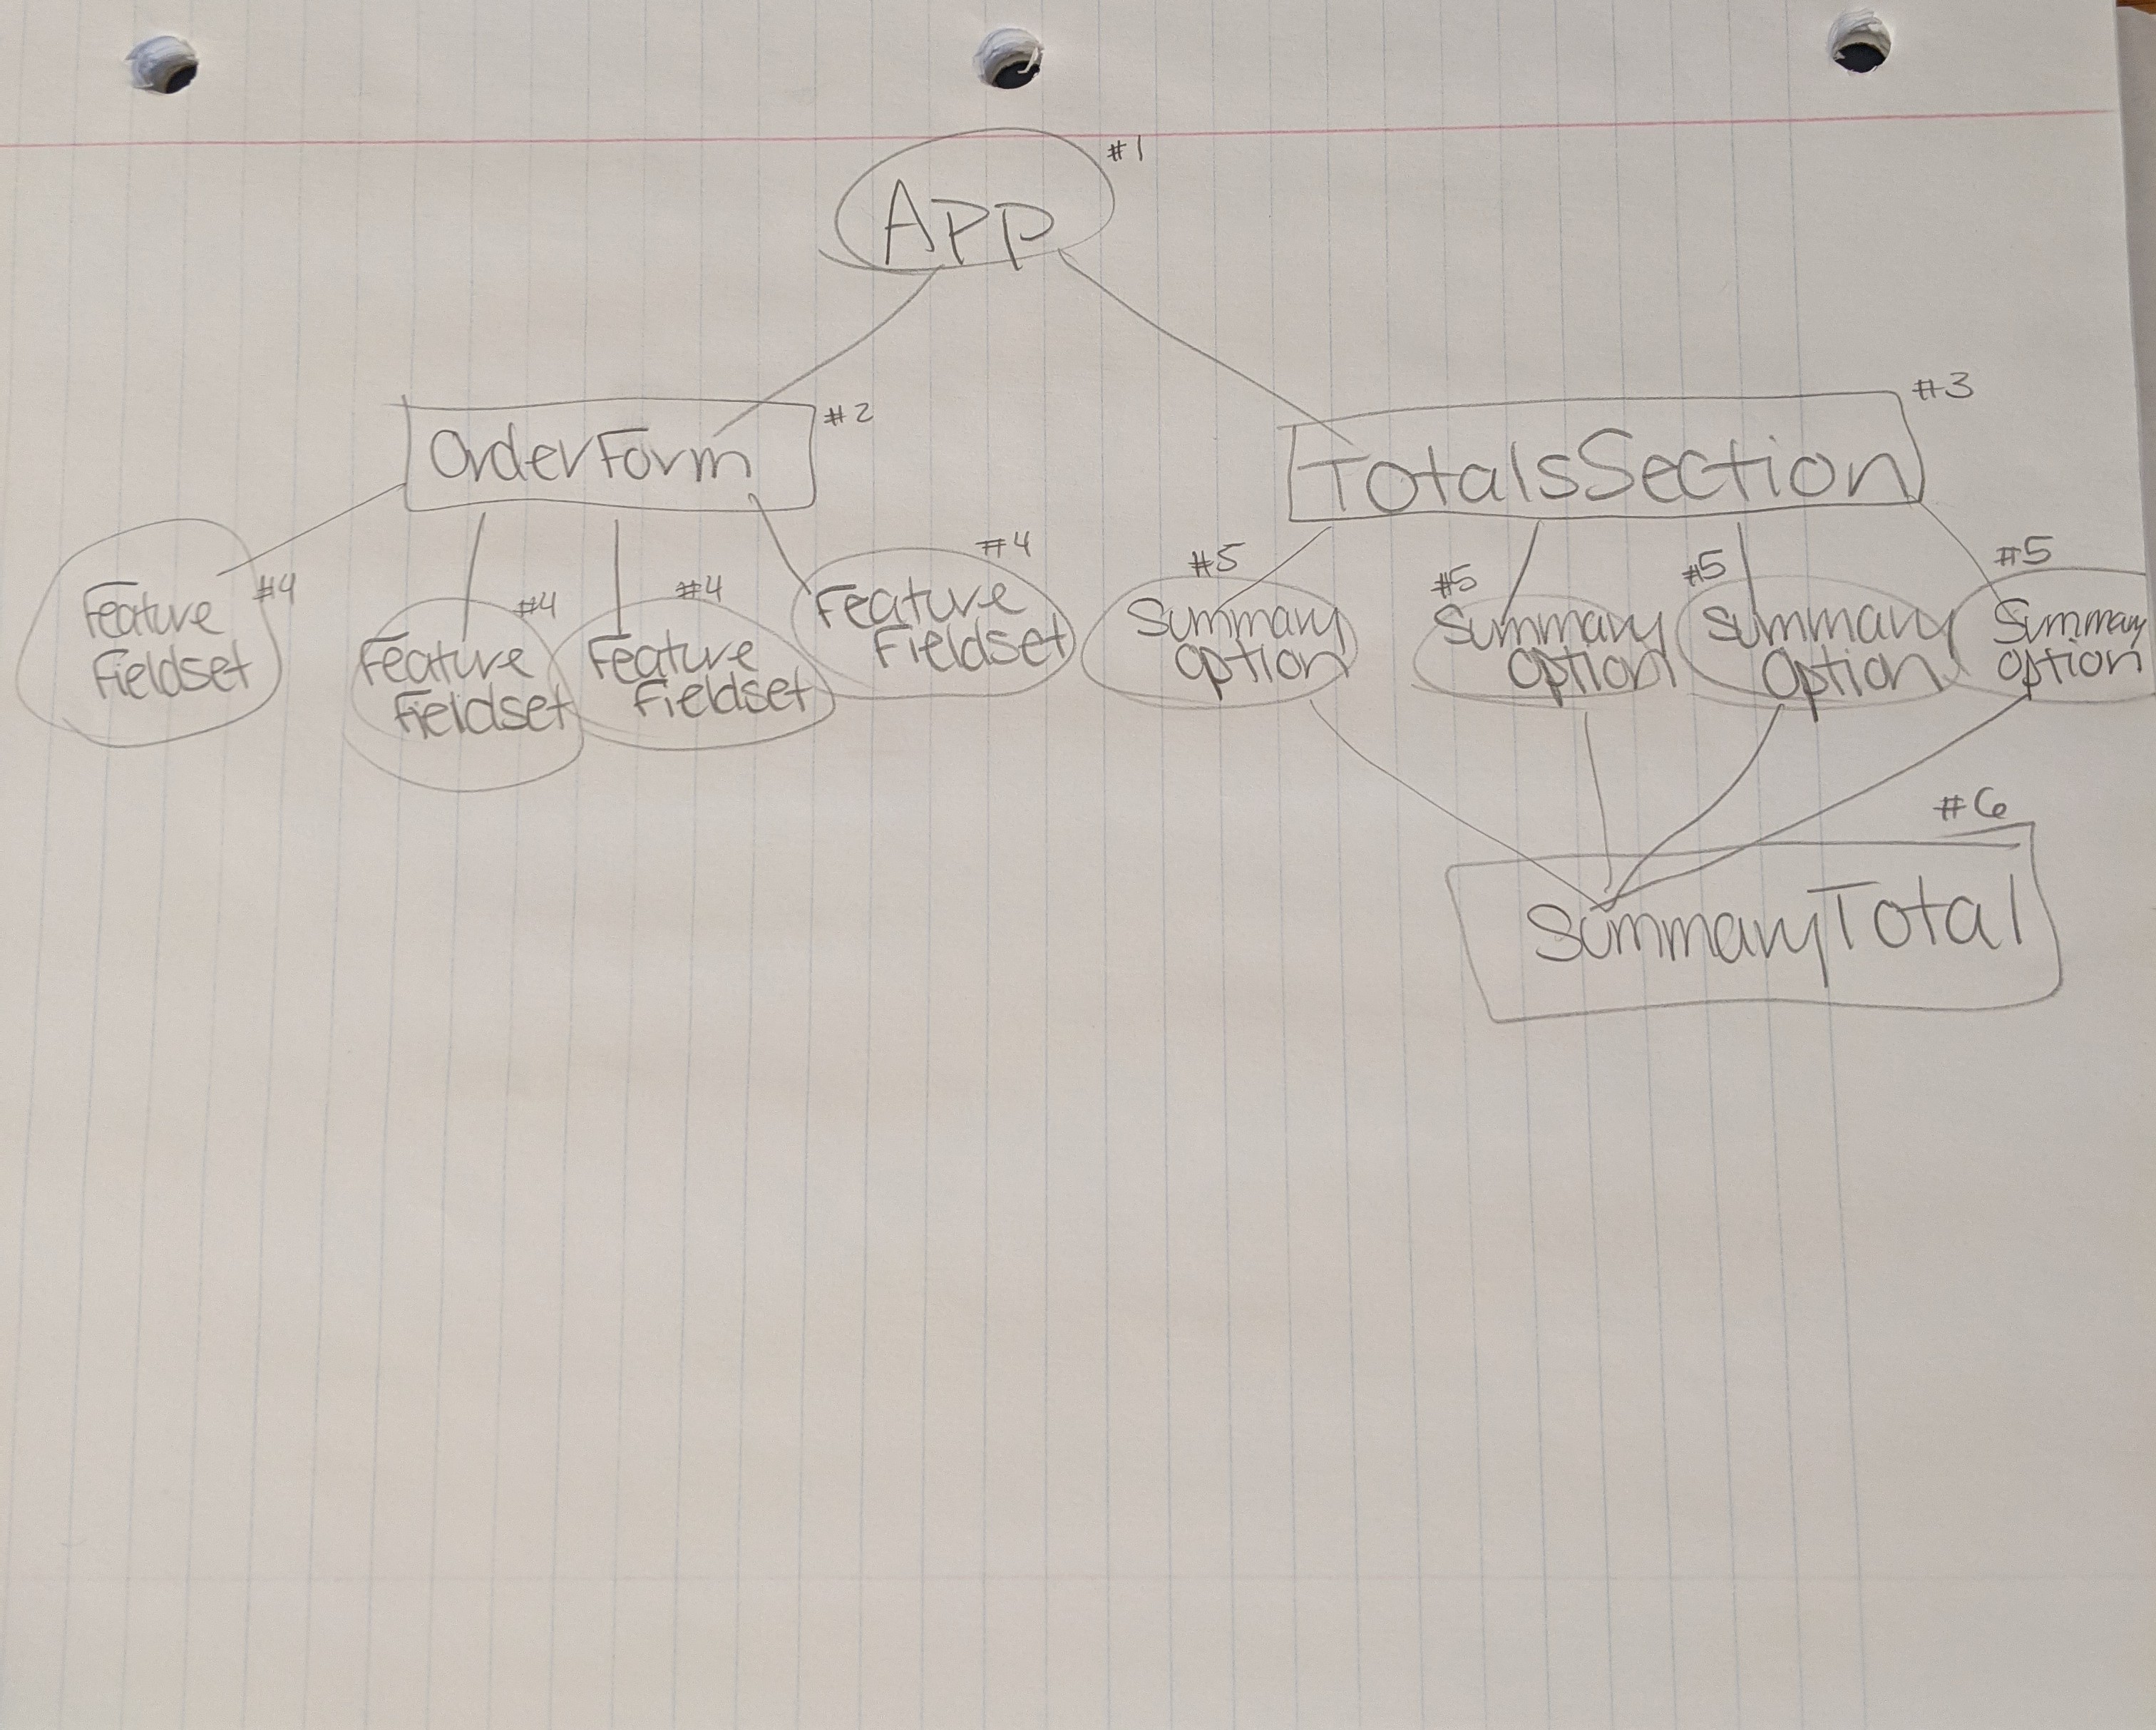 #1
App
#2
OrderForm
#3
TotalsSection
#4
Feature
Fieldset
#4
Feature
Fieldset
#4
Feature
Fieldset
#4
Feature
Fieldset
#5
Summary
Option
#5
Summary
Option
#5
Summary
Option
#5
Summary
Option
#6
SummaryTotal